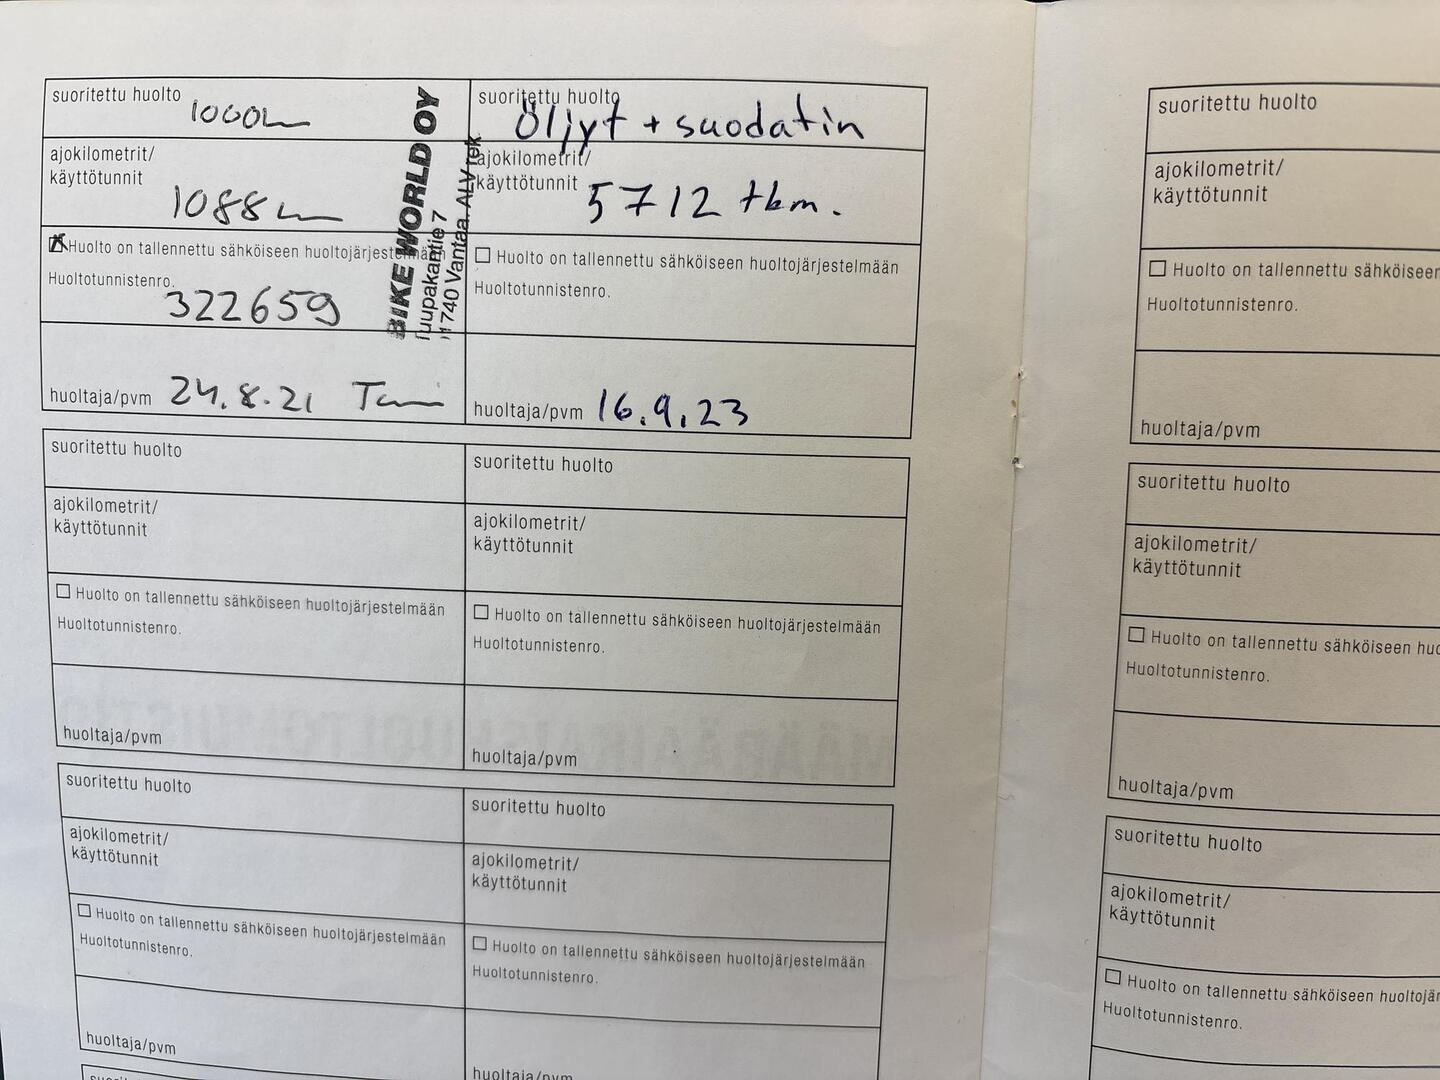 suoritettu huolto 1000km
ajokilometrit/
käyttötunnit 1088km
Huolto on tallennettu sähköiseen huoltojärjestelmään
Huoltotunnistenro. 322659
huoltaja/pvm 24.8.21
BIKE WORLD OY
Tuupakantie 7
01740 Vantaa. ALV rek
suoritettu huolto Öljyt + suodatin
ajokilometrit/
käyttötunnit 5712 tkm.
Huolto on tallennettu sähköiseen huoltojärjestelmään
Huoltotunnistenro.
huoltaja/pvm 16.9.23
suoritettu huolto
ajokilometrit/
käyttötunnit
Huolto on tallennettu sähköiseen huoltojärjestelmään
Huoltotunnistenro.
huoltaja/pvm
suoritettu huolto
ajokilometrit/
käyttötunnit
Huolto on tallennettu sähköiseen huoltojärjestelmään
Huoltotunnistenro.
huoltaja/pvm
suoritettu huolto
ajokilometrit/
käyttötunnit
Huolto on tallennettu sähköiseen huoltojärjestelmään
Huoltotunnistenro.
huoltaja/pvm
suoritettu huolto
ajokilometrit/
käyttötunnit
Huolto on tallennettu sähköiseen huoltojärjestelmään
Huoltotunnistenro.
huoltaja/pvm
suoritettu huolto
ajokilometrit/
käyttötunnit
Huolto on tallennettu sähköiseen
Huoltotunnistenro.
huoltaja/pvm
suoritettu huolto
ajokilometrit/
käyttötunnit
Huolto on tallennettu sähköiseen huo
Huoltotunnistenro.
huoltaja/pvm
suoritettu huolto
ajokilometrit/
käyttötunnit
Huolto on tallennettu sähköiseen huoltojär
Huoltotunnistenro.